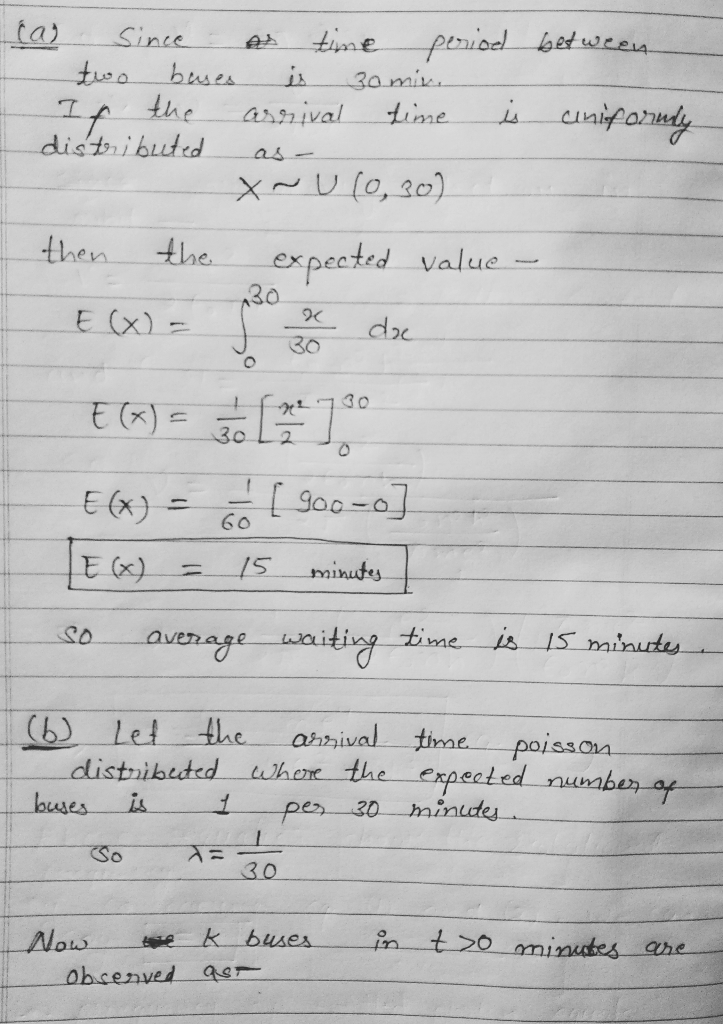 (a) Since time period between
two buses is 30 min.
If the arrival time is uniformly
distributed as –
X ~ U (0, 30)
then the expected value –
E (X) = ∫₀³⁰ x/30 dx
E (x) = 1/30 [x²/2]₀³⁰
E (x) = 1/60 [900 – 0]
E (x) = 15 minutes
so average waiting time is 15 minutes.
(b) Let the arrival time poisson
distributed where the expected number of
buses is 1 per 30 minutes.
so λ = 1/30
Now K buses in t >0 minutes are
observed as –